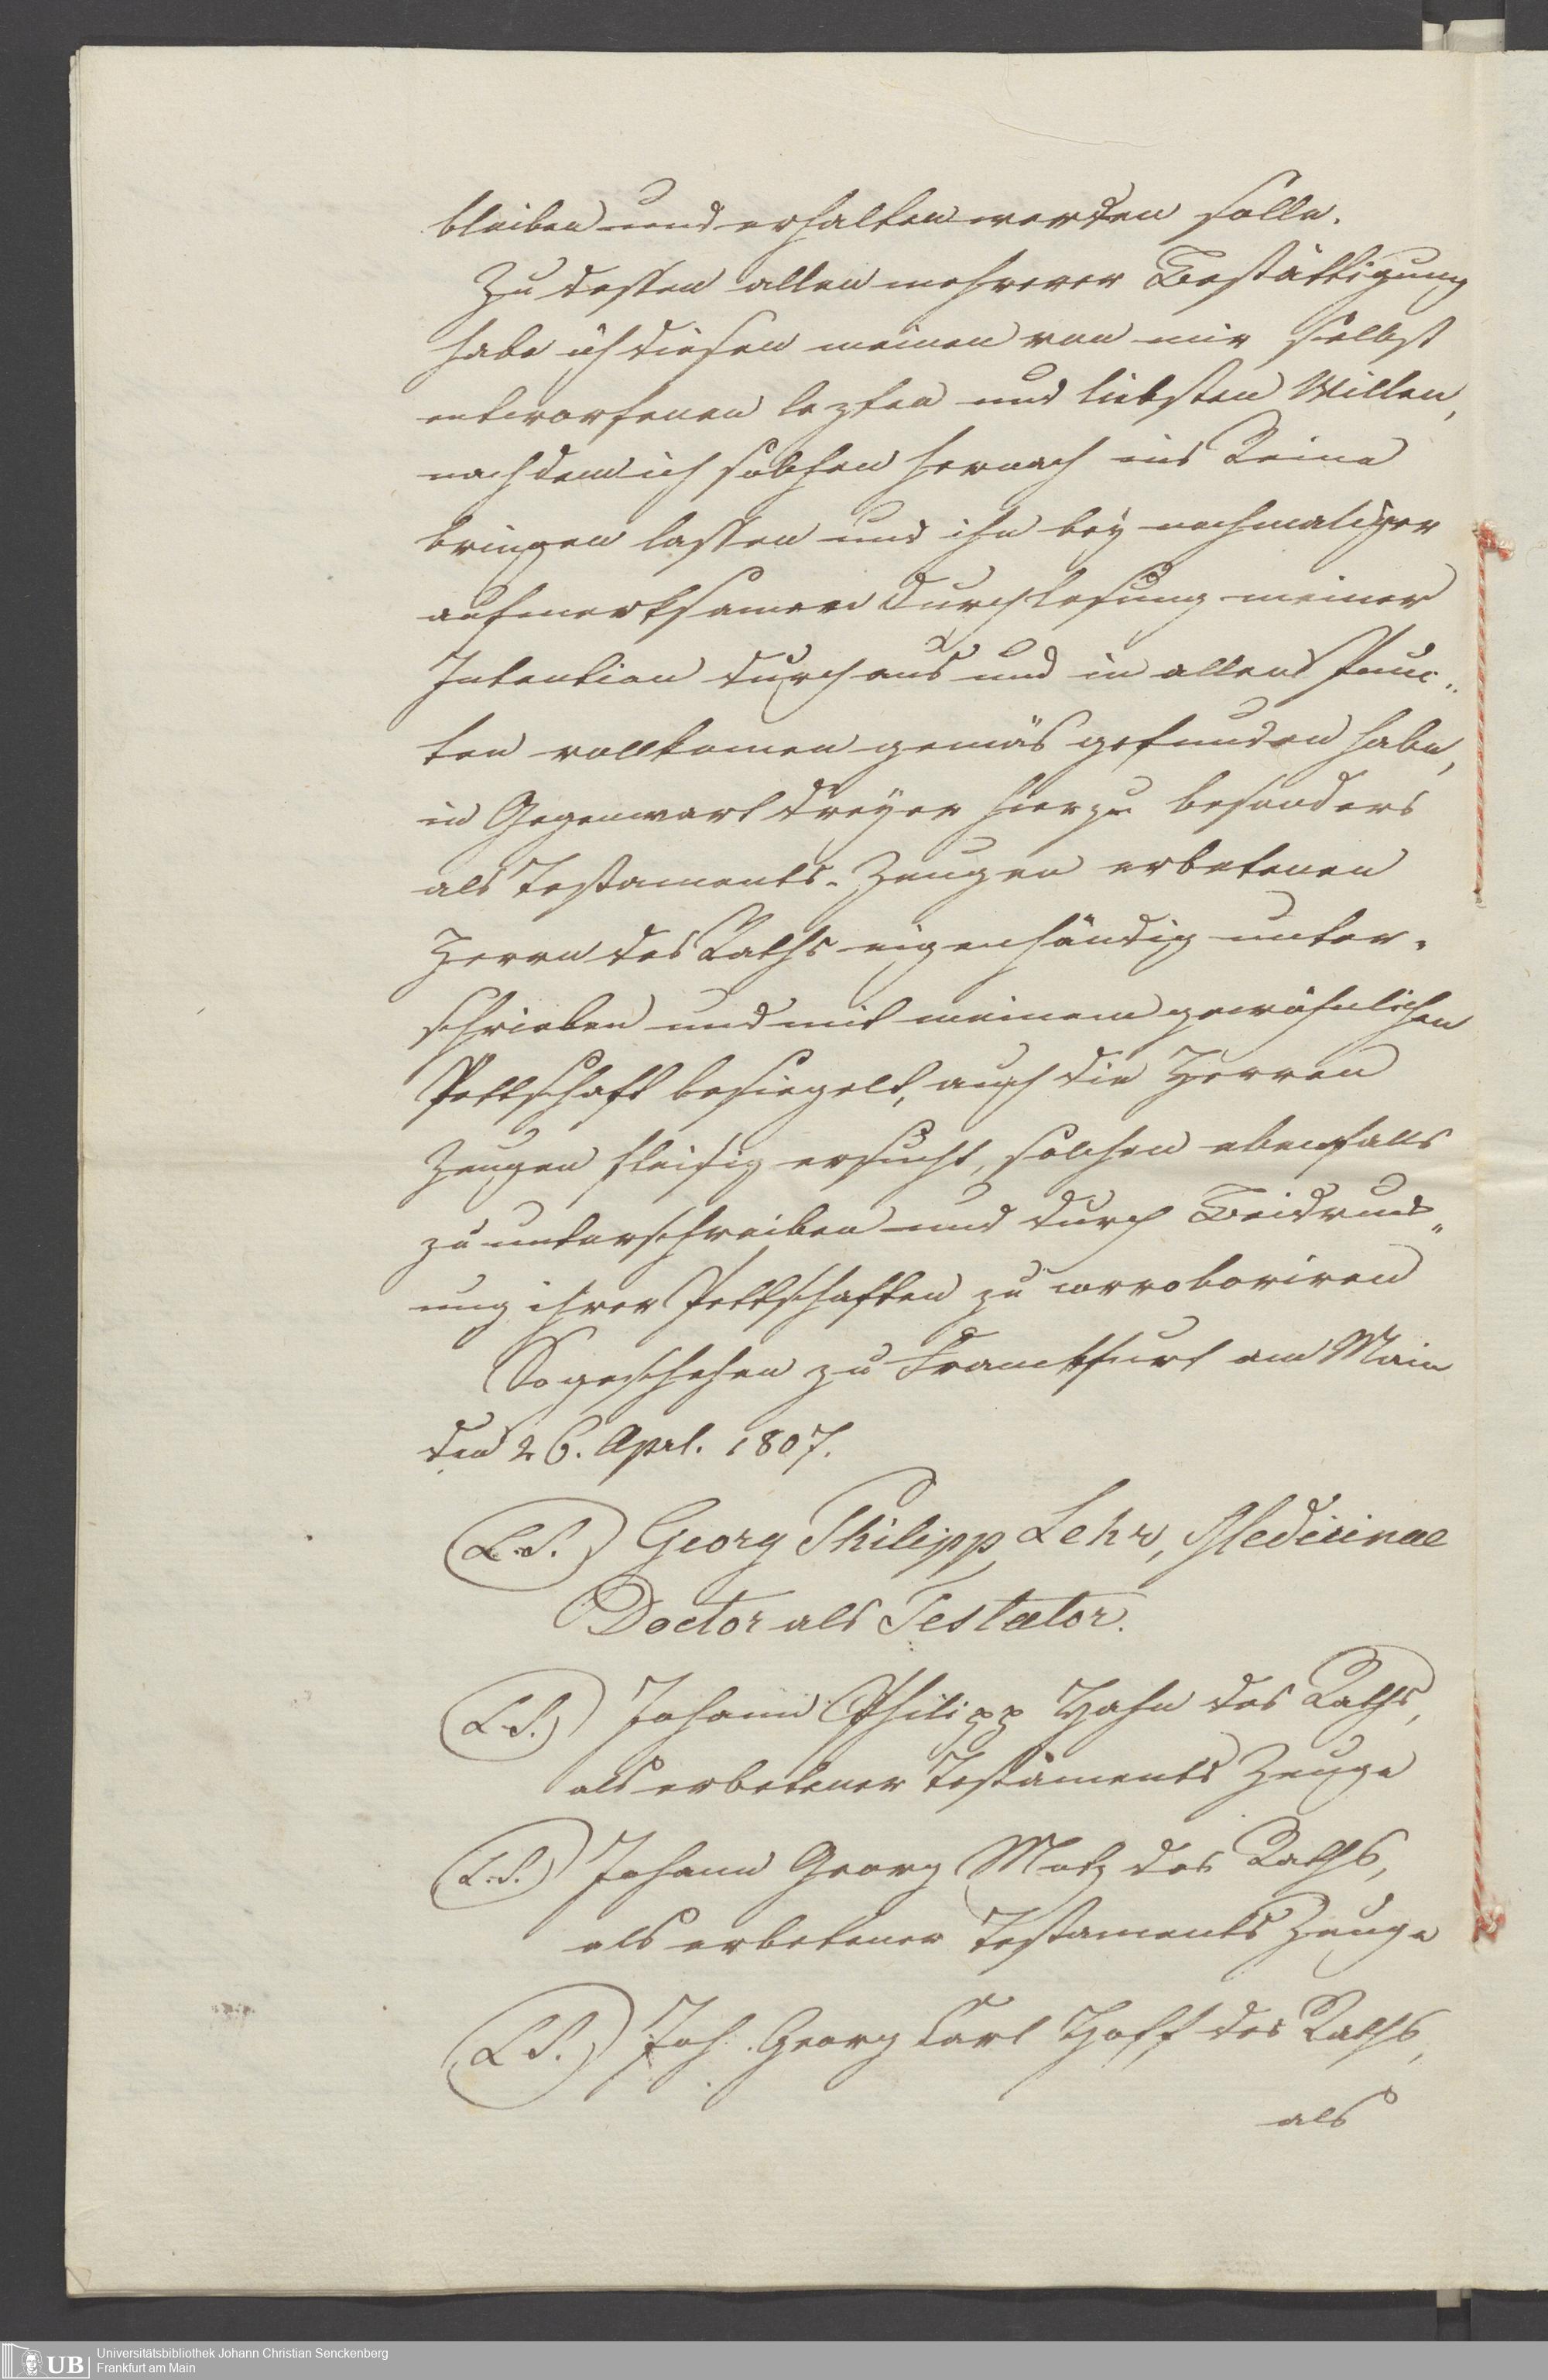 bleiben und erhalten werden solle.
Zu dessen allen mehrerer Bestättigung
habe ich diesen meinen von mir selbst
entworfenen lezten und liebsten Willen,
nachdem ich solchen hernach ins Reine
bringen lassen und ihn bey nochmaliger
aufmerksamer Durchlesung meiner
Intention durchaus und in allen Punc„
ten vollkomen gemäs gefunden habe,
in Gegenwart dreyer hierzu besonders
als Testaments-Zeugen erbetenen
Herrn des Raths eigenhändig unter-
schrieben und mit meinem gewöhnlichen
Pettschaft besiegelt, auch die Herren
Zeugen fleisig ersucht, solchen ebenfalls
zu unterschreiben und durch Beidruck„
ung ihrer Pettschaften zu corroboriren
So geschehen zu Franckfurt am Main
den 26. Aprl. 1807.
(L.S.) Georg Philipp Lehr, Medicinae
Doctor als Testator.
(L.S.) Johann Philipp Hahn des Raths,
als erbetener Testaments Zeuge
(L.S.) Johann Georg Motz des Raths,
als erbetener Testaments Zeuge
(L.S.) Joh. Georg Carl Hoff des Raths,
als
UB Universitätsbibliothek Johann Christian Senckenberg
Frankfurt am Main